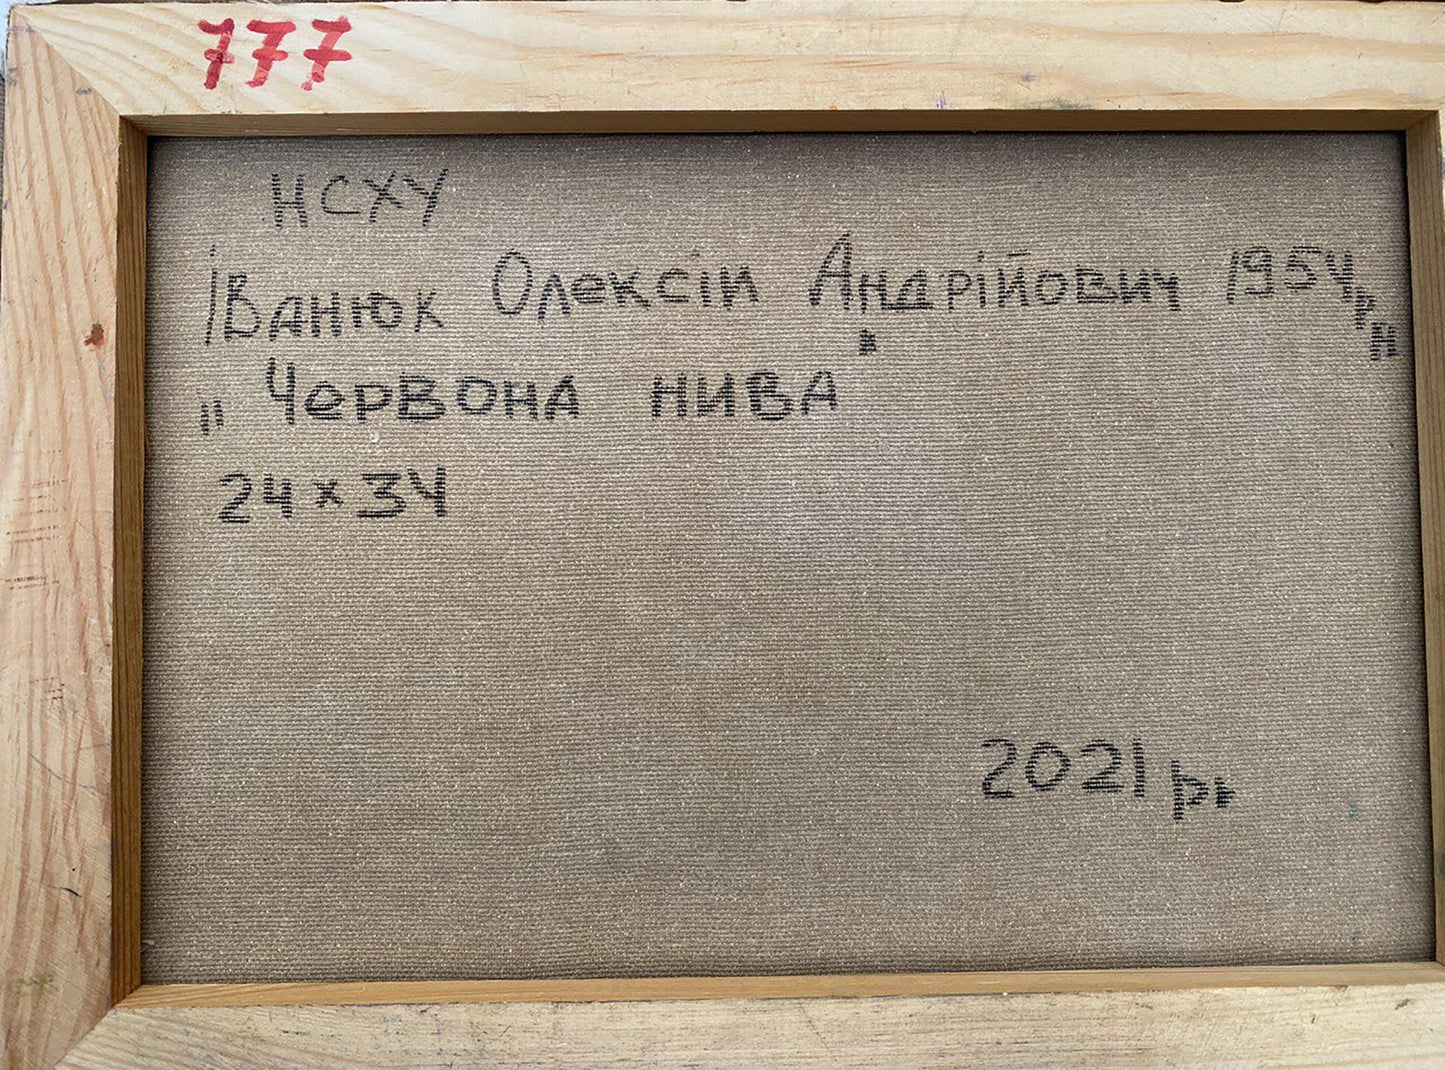 777
НСХУ
Іванюк Олексій Андрійович 1954 р н
„ Червона нива "
24 х 34
2021 р.